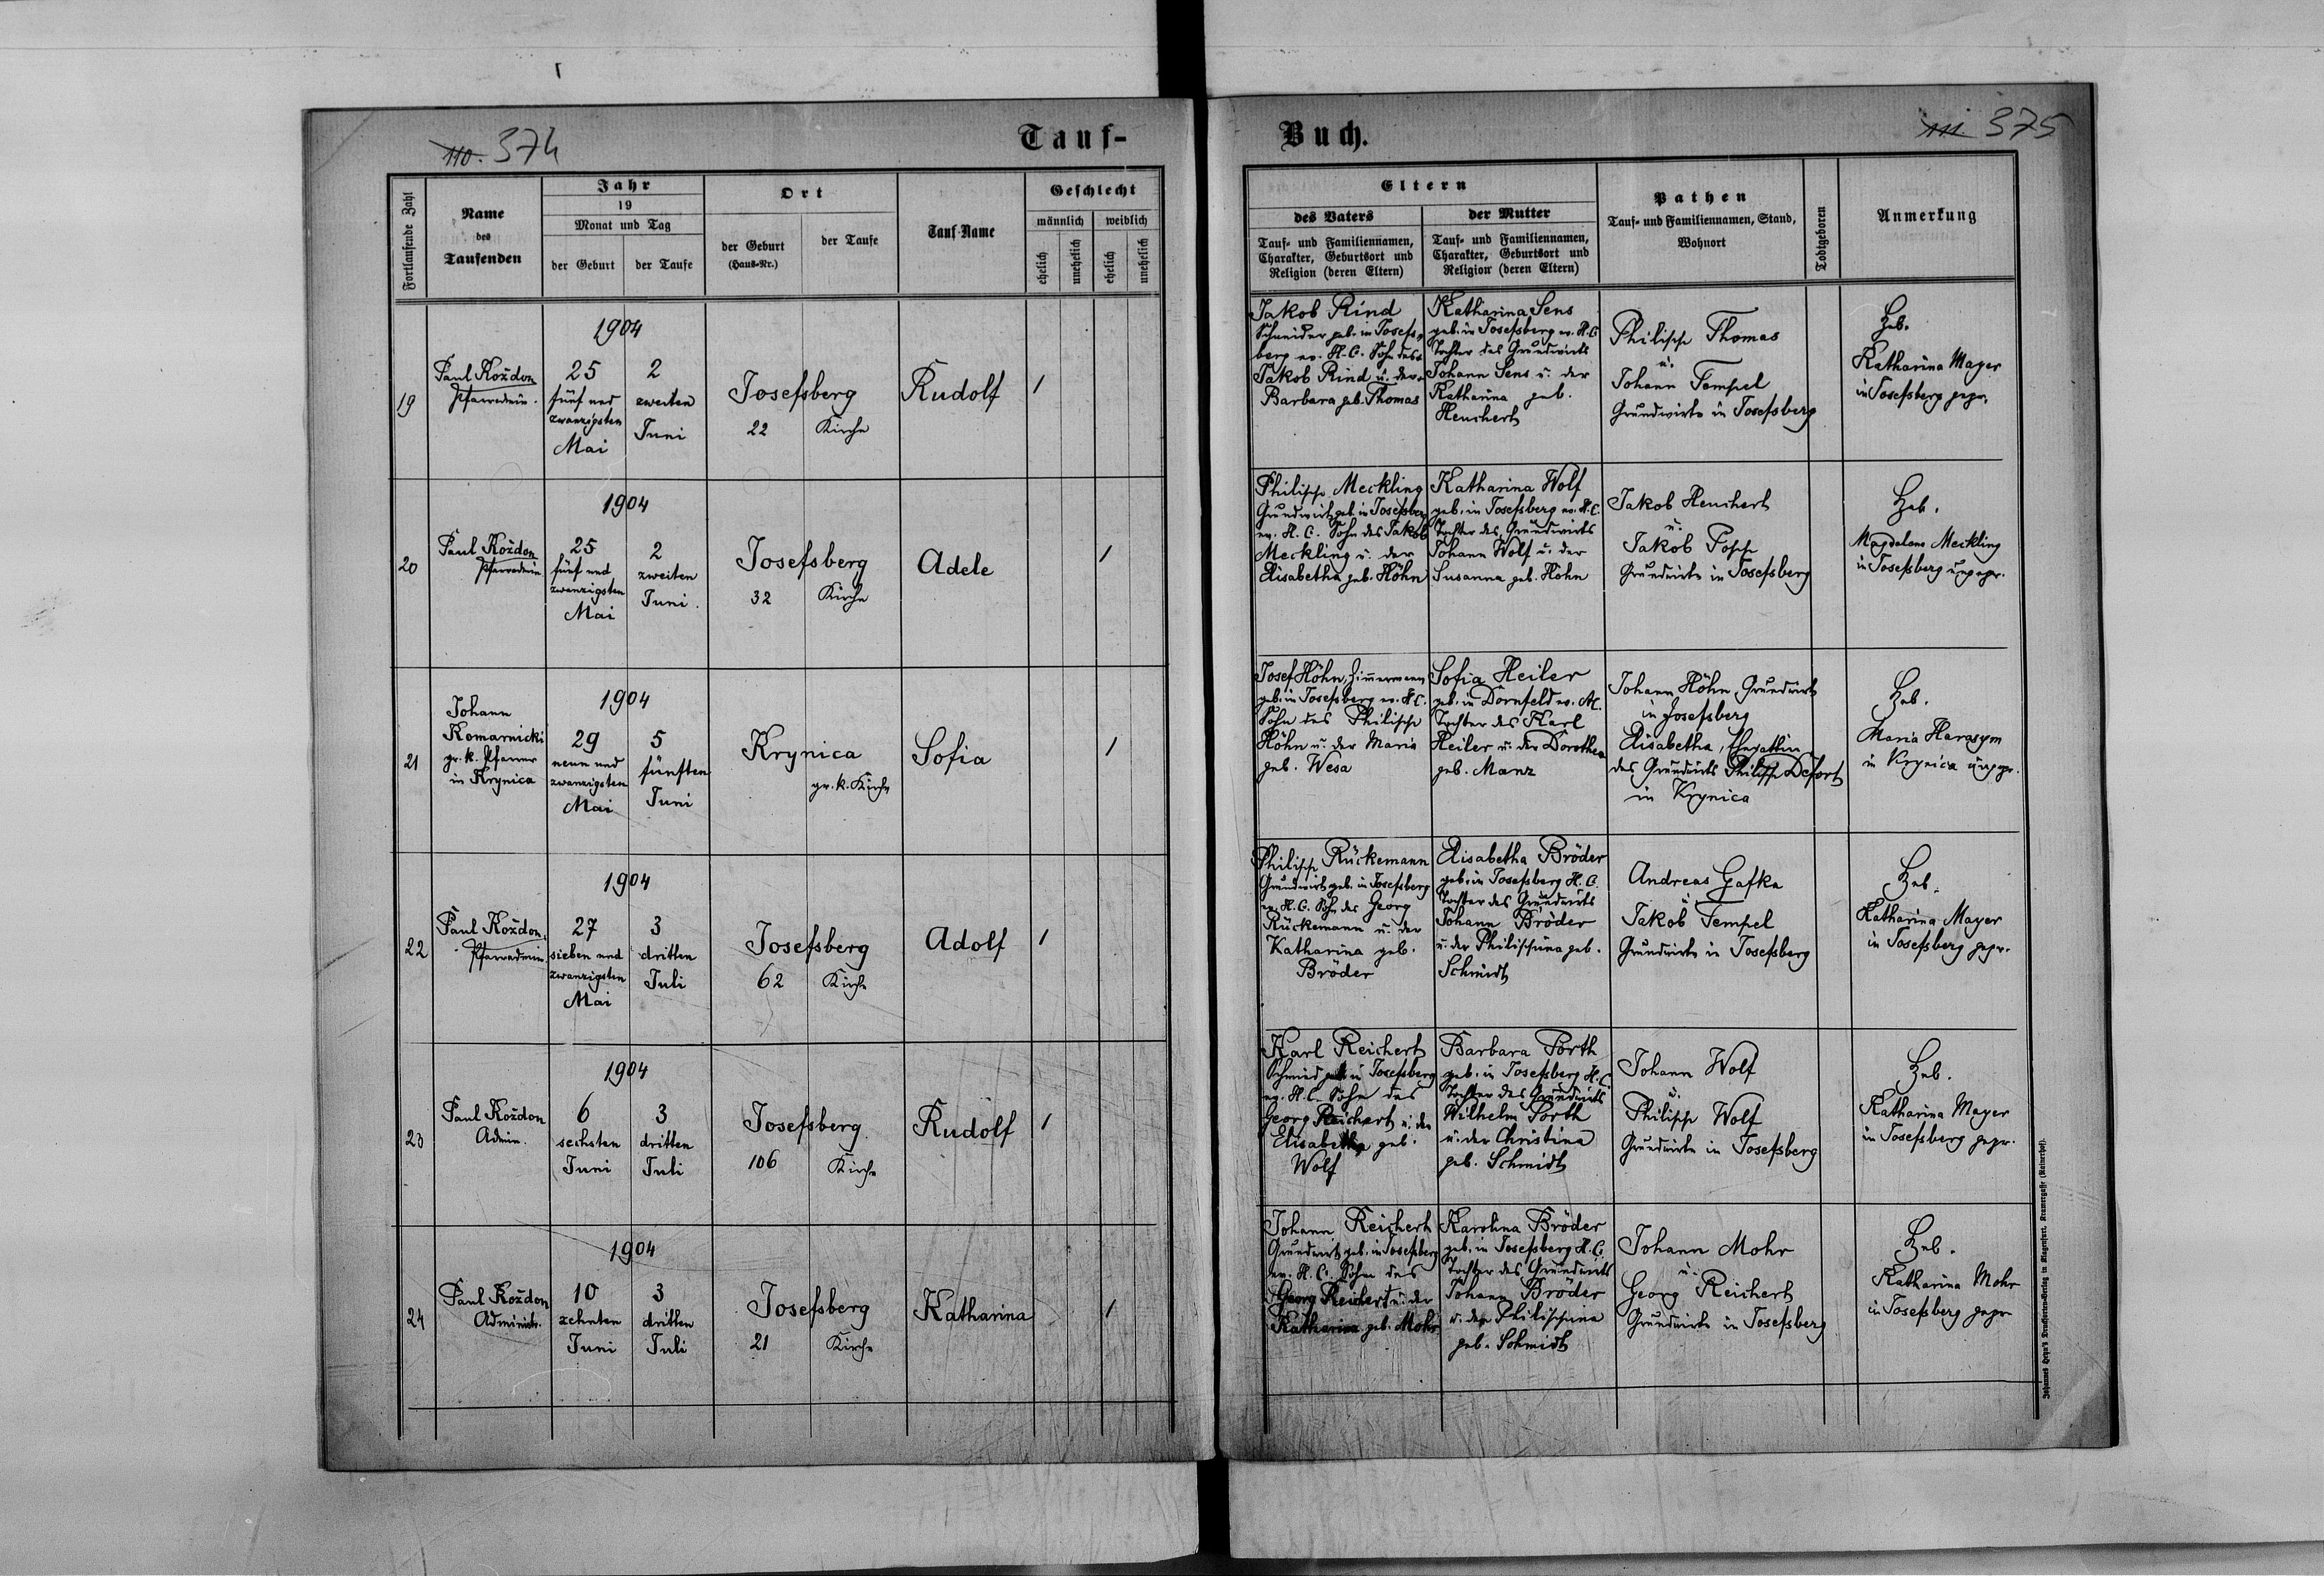 110. 374
Tauf-
Fortlaufende Zahl
Name
des
Taufenden
Jahr
19
Monat und Tag
der Geburt
der Taufe
Ort
der Geburt
(Haus-Nr.)
der Taufe
Tauf-Name
Geschlecht
männlich
weiblich
ehelich
unehelich
ehelich
unehelich
19
Paul Koždon
Pfarradmin.
1904
25
fünf und
zwanzigsten
Mai
2
zweiten
Juni
Josefsberg
22
Kirche
Rudolf
1
20
Paul Koždon
Pfarradmin
1904
25
fünf und
zwanzigsten
Mai
2
zweiten
Juni.
Josefsberg
32
Kirche
Adele
1
21
Johann
Komarnicki
gr. k. Pfarrer
in Krynica
1904
29
neun und
zwanzigsten
Mai
5
fünften
Juni
Krynica
gr. k. Kirche
Sofia
1
22
Paul Koždon,
Pfarradmin
1904
27
sieben und
zwanzigsten
Mai
3
dritten
Juli
Josefsberg
62
Kirche
Adolf
1
23
Paul Koždon
Admin.
1904
6
sechsten
Juni
3
dritten
Juli
Josefsberg
106
Kirche
Rudolf
1
24
Paul Koždon
Administr.
1904
10
zehnten
Juni
3
dritten
Juli
Josefsberg
21
Kirche
Katharina
1
Buch.
111. 375
Eltern
des Vaters
Tauf- und Familiennamen,
Charakter, Geburtsort und
Religion (deren Eltern)
der Mutter
Tauf- und Familiennamen,
Charakter, Geburtsort und
Religion (deren Eltern)
Pathen
Tauf- und Familiennamen, Stand,
Wohnort
Todtgeboren
Anmerkung
Jakob Rind
Schneider geb. in Josefs-
berg ev. H. C. Sohn des
Jakob Rind u. der
Barbara geb. Thomas
Katharina Sens
geb. in Josefsberg ev. H. C.
Tochter des Grundwirts
Johann Sens u. der
Katharina geb.
Heuchert
Philipp Thomas
u.
Johann Tempel
Grundwirte in Josefsberg
Heb.
Katharina Mayer
in Josefsberg gepr.
Philipp Meckling
Grundwirt geb. in Josefsberg
ev. H. C. Sohn des Jakob
Meckling u. der
Elisabetha geb. Höhn
Katharina Wolf
geb. in Josefsberg ev. H. C.
Tochter des Grundwirts
Johann Wolf u. der
Susanna geb. Höhn
Jakob Heuchert
u.
Jakob Popp
Grundwirte in Josefsberg
Heb.
Magdalena Meckling
in Josefsberg ungepr.
Josef Höhn, Zimmermann
geb. in Josefsberg ev. H. C.
Sohn des Philipp
Höhn u. der Maria
geb. Wesa
Sofia Heiler
geb. in Dornfeld ev. AC.
Tochter des Karl
Heiler u. der Dorothea
geb. Manz
Johann Höhn, Grundwirt
in Josefsberg
Elisabetha, Ehegattin
des Grundwirts Philipp Defort
in Krynica
Heb.
Maria Harasym
in Krynica ungepr.
Philipp Rückemann
Grundwirt geb. in Josefsberg
ev. H. C. Sohn des Georg
Rückemann u. der
Katharina geb.
Bröder
Elisabetha Bröder
geb. in Josefsberg H. C.
Tochter des Grundwirts
Johann Bröder
u. der Philippina geb.
Schmidt
Andreas Gafka
u.
Jakob Tempel
Grundwirte in Josefsberg
Heb.
Katharina Mayer
in Josefsberg gepr.
Karl Reichert
Schmied geb. in Josefsberg
ev. H. C. Sohn des
Georg Reichert u. der
Elisabetha geb.
Wolf
Barbara Porth
geb. in Josefsberg H. C.
Tochter des Grundwirts
Wilhelm Porth
u. der Christina
geb. Schmidt
Johann Wolf
u.
Philipp Wolf
Grundwirte in Josefsberg
Heb.
Katharina Mayer
in Josefsberg gepr.
Johann Reichert
Grundwirt geb. in Josefsberg
ev. H. C. Sohn des
Georg Reichert u. der
Katharina geb. Mohr
Karolina Bröder
geb. in Josefsberg H. C.
Tochter des Grundwirts
Johann Bröder
u. der Philippina
geb. Schmidt
Johann Mohr
u.
Georg Reichert
Grundwirte in Josefsberg
Heb.
Katharina Mohr
in Josefsberg gepr